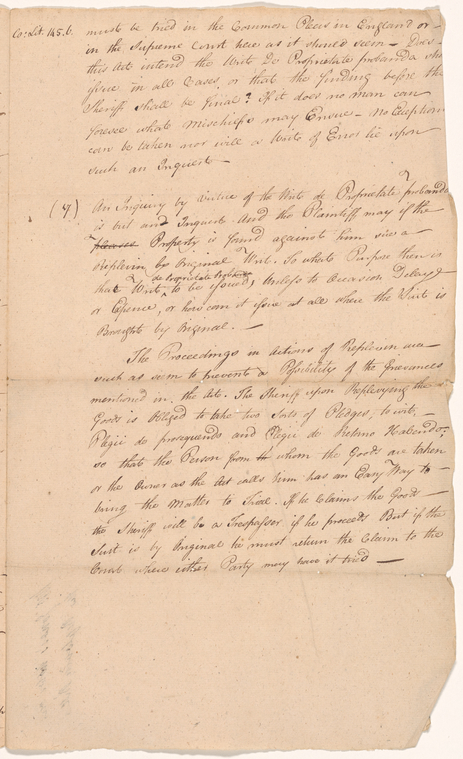 Co: Lit. 145. 6. must be tried in the Common Pleas in England or –
in the Supreme Court here as it should seem – Does –
this Act intend the Writ De Proprietate probanda shou
issue in all Cases, or that the finding before the
Sheriff shall be final? If it does no man can
foresee what Mischiefs may Ensue – No Exception
can be taken nor will a Writ of Error lie upon
such an Inquest –
(7) An Inquiry by virtue of the Writ de Proprietate probanda
is but an Inquest And the Plaintiff may if the
Property is found against him sue a
Replevin by Original Writ. So what Purpose then is
de Proprietate Probanda
that Writ to be issued, unless to Occasion Delay &
or Expence, or how can it issue at all where the Writ is
Brought by Original. –
The Proceedings in Actions of Replevin are –
such as seem to prevent a Possibility of the Grievances
mentioned in the Act. The Sheriff upon Replevying the
Goods is Obliged to take two Sorts of Pledges, to wit, –
Plegii de prosequendo and Plegii de Retorno Habendo;
so that the Person from whom the Goods are taken
or the Owner as the Act calls him has an Easy Way to –
bring the Matter to Trial. If he Claims the Goods –
the Sheriff will be a Trespasser if he proceeds But if the
Suit is by Original he must return the Claim to the
Court where either Party may have it tried –